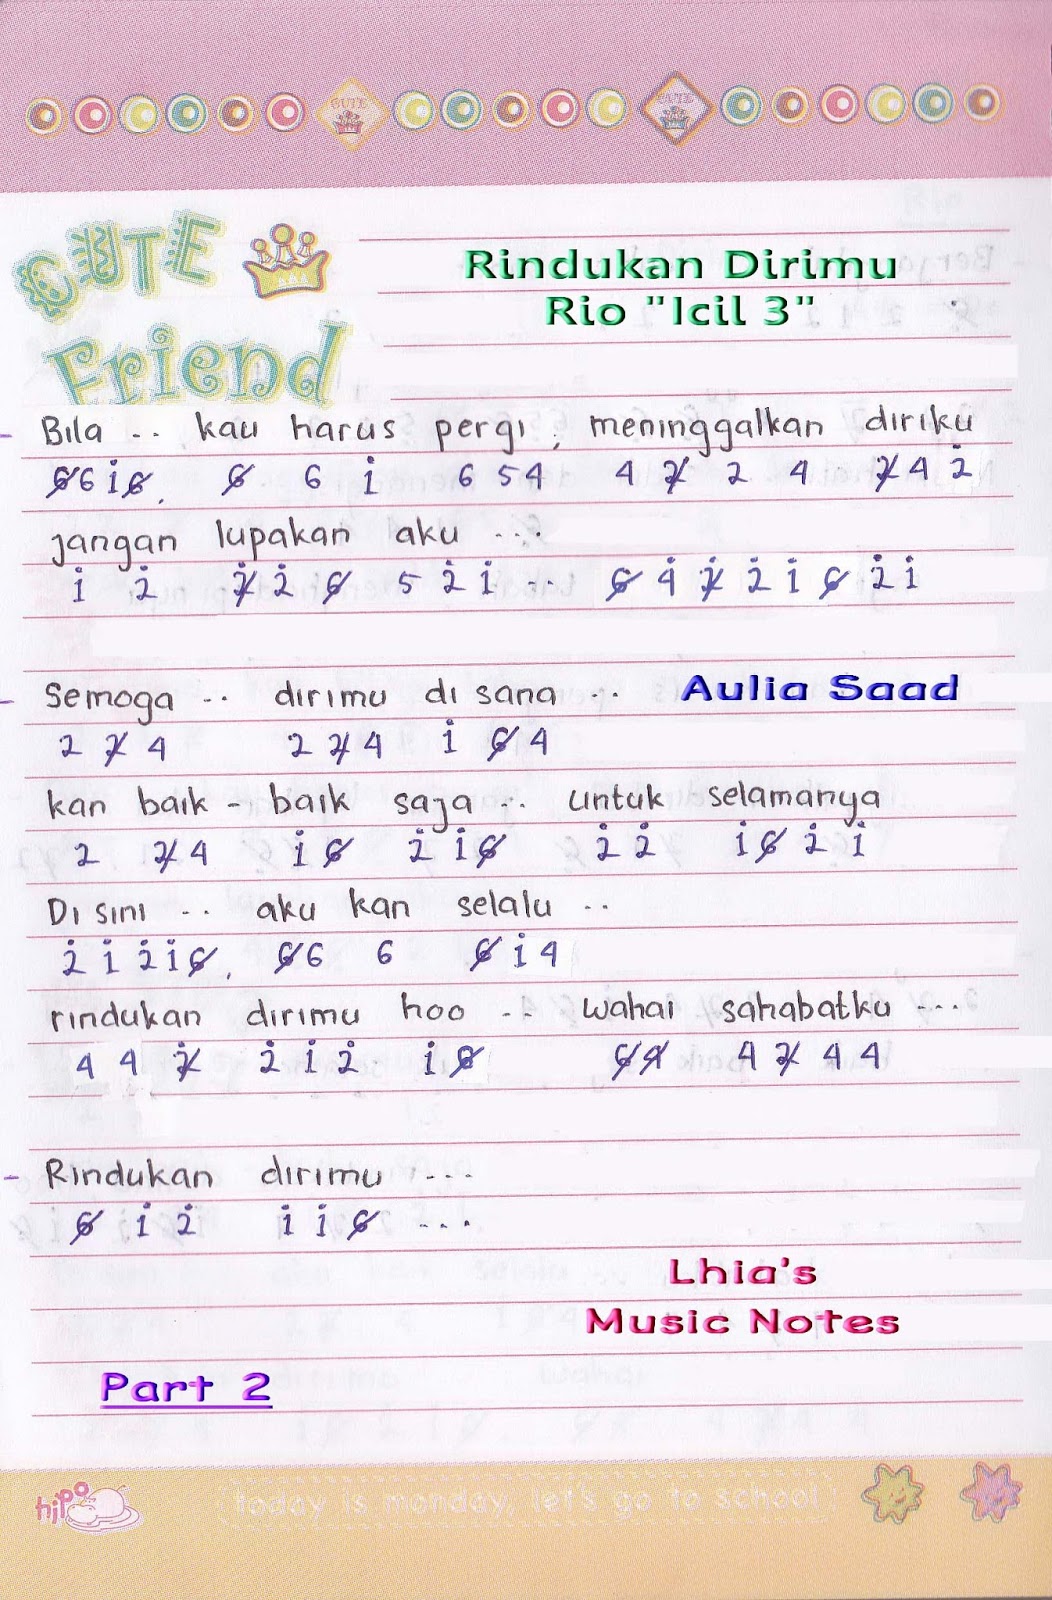 CUTE CUTE
CUTE
Friend
Rindukan Dirimu
Rio "Icil 3"
- Bila .. kau harus pergi, meninggalkan diriku
6̸6i̇6̸. 6̸ 6 i̇ 6 54 4 2̸ 2 4 2̸4 2̇
jangan lupakan aku ...
i̇ 2̇ 2̸̇ 2̇ 6̸ 5 2̇ i̇ .. 6̸ 4̇ 2̸̇ 2̇ i̇ 6̸ 2̇ i̇
- Semoga .. dirimu di sana ..
Aulia Saad
2 2̸ 4 2 2̸4 i̇ 6̸ 4
kan baik - baik saja .. untuk selamanya
2 2̸4 i̇ 6̸ 2̇ i̇ 6̸ 2̇ 2̇ i̇ 6̸ 2̇ i̇
Di sini .. aku kan selalu ..
2̇ i̇ 2̇ i̇ 6̸. 6̸6 6 6̸ i̇ 4
rindukan dirimu hoo .. wahai sahabatku ...
4 4 2̸̇ 2̇ i̇ 2̇ i̇ 6̸ 6̸4̸ 4 2̸ 4 4
- Rindukan dirimu ...
6̸ i̇ 2̇ i̇ i̇ 6̸ ...
Lhia's
Music Notes
Part 2
hipo
today is monday, let's go to school!